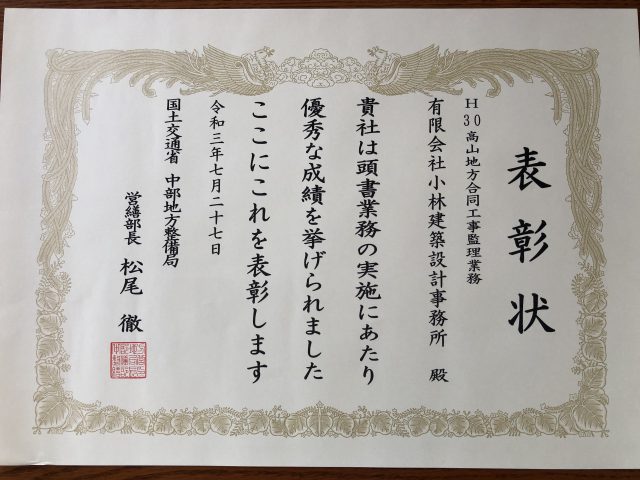 表彰状
H30高山地方合同工事監理業務
有限会社小林建築設計事務所 殿
貴社は頭書業務の実施にあたり
優秀な成績を挙げられました
ここにこれを表彰します
令和三年七月二十七日
国土交通省 中部地方整備局
営繕部長 松尾 徹